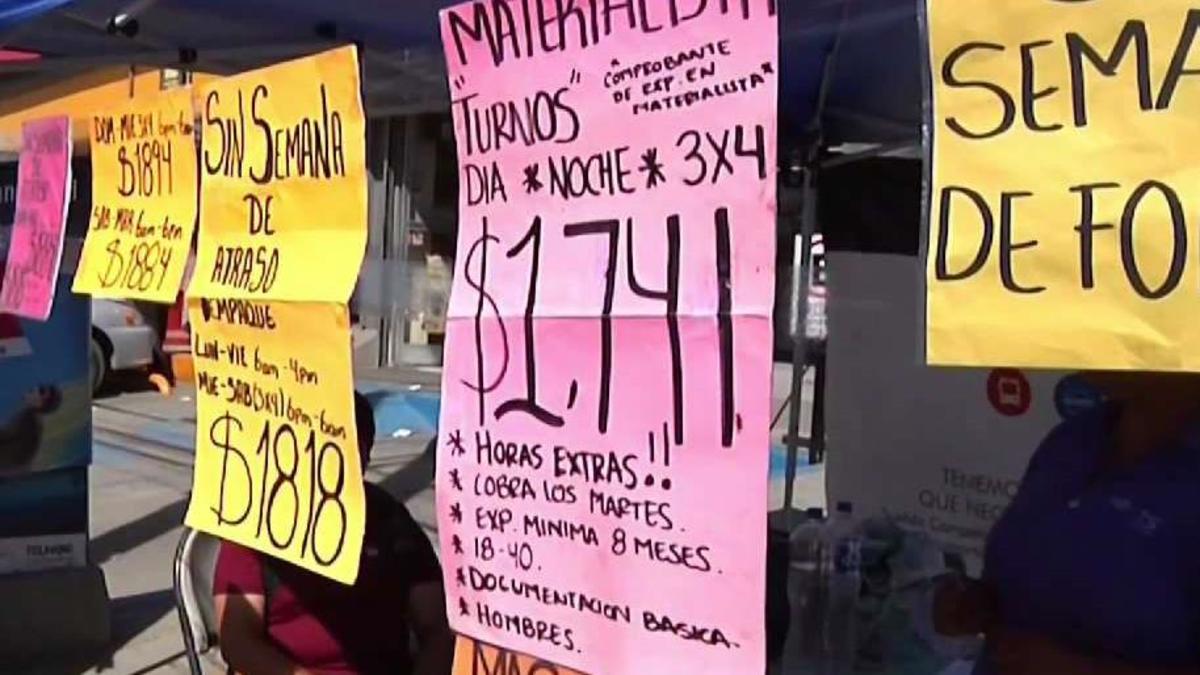 DOM-MIE 3X4 6pm-6am
$1894
SAB-MAR 6am-6pm
$1884
SIN SEMANA
DE
ATRASO
EMPAQUE
LUN-VIE 6am-4pm
MIE-SAB (3X4) 6pm-6am
$1818
MATERIALISTA
"TURNOS"
*COMPROBANTE
DE EXP. EN
MATERIALISTA*
DIA * NOCHE * 3X4
$1,741
* HORAS EXTRAS!!
* COBRA LOS MARTES.
* EXP. MINIMA 8 MESES.
* 18-40.
* DOCUMENTACION BASICA.
* HOMBRES.
SEMA
DE FO
TENEMO
QUE NEC